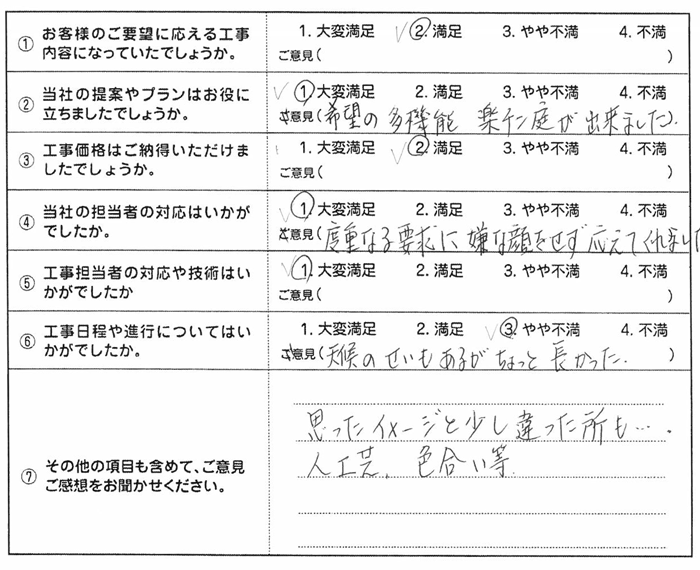 ① お客様のご要望に応える工事 1. 大変満足 2. 満足 3. やや不満 4. 不満
内容になっていたでしょうか。 ご意見( )
② 当社の提案やプランはお役に 1. 大変満足 2. 満足 3. やや不満 4. 不満
立ちましたでしょうか。 ご意見(希望の多機能 楽チン庭が出来ました).
③ 工事価格はご納得いただけま 1. 大変満足 2. 満足 3. やや不満 4. 不満
したでしょうか。 ご意見( )
④ 当社の担当者の対応はいかが 1. 大変満足 2. 満足 3. やや不満 4. 不満
でしたか。 ご意見(度重なる要求に嫌な顔をせず応えてくれました
⑤ 工事担当者の対応や技術はい 1. 大変満足 2. 満足 3. やや不満 4. 不満
かがでしたか ご意見( )
⑥ 工事日程や進行についてはい 1. 大変満足 2. 満足 3. やや不満 4. 不満
かがでしたか。 ご意見(天候のせいもあるがちょっと長かった.
思ったイメージと少し違った所も….
人工芝. 色合い等.
⑦ その他の項目も含めて、ご意見
ご感想をお聞かせください。